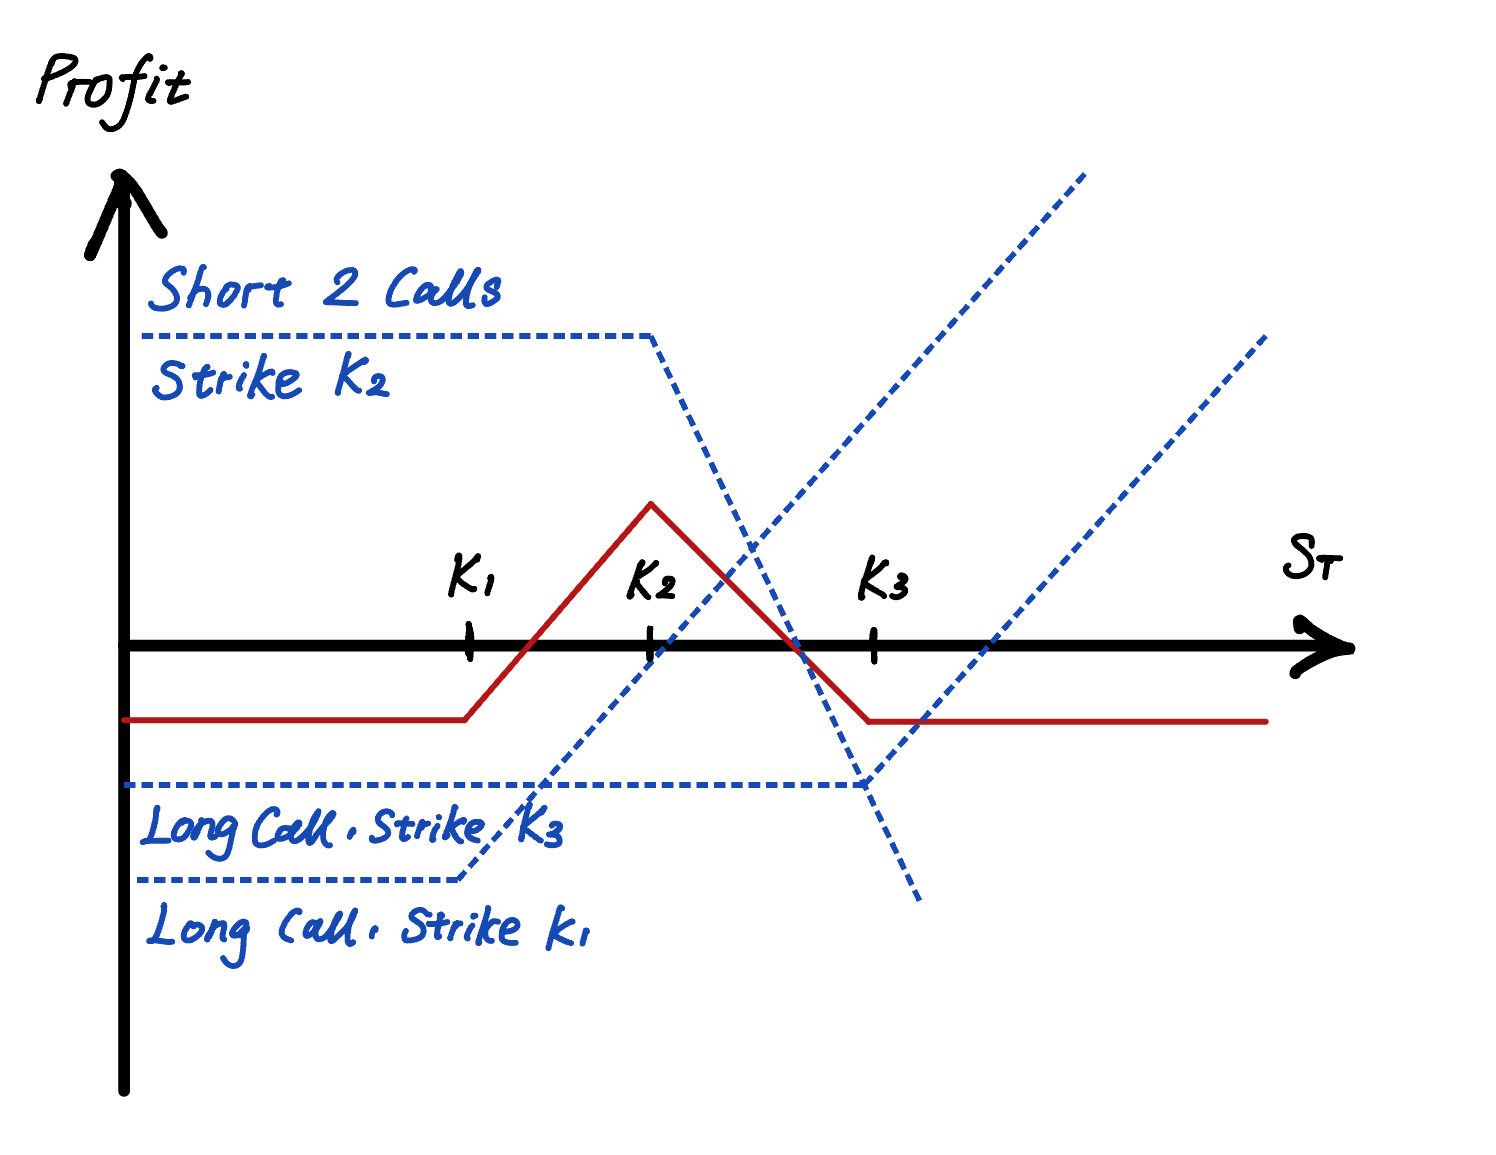 Profit
Short 2 Calls
Strike K2
K1
K2
K3
ST
Long Call, Strike K3
Long Call, Strike K1